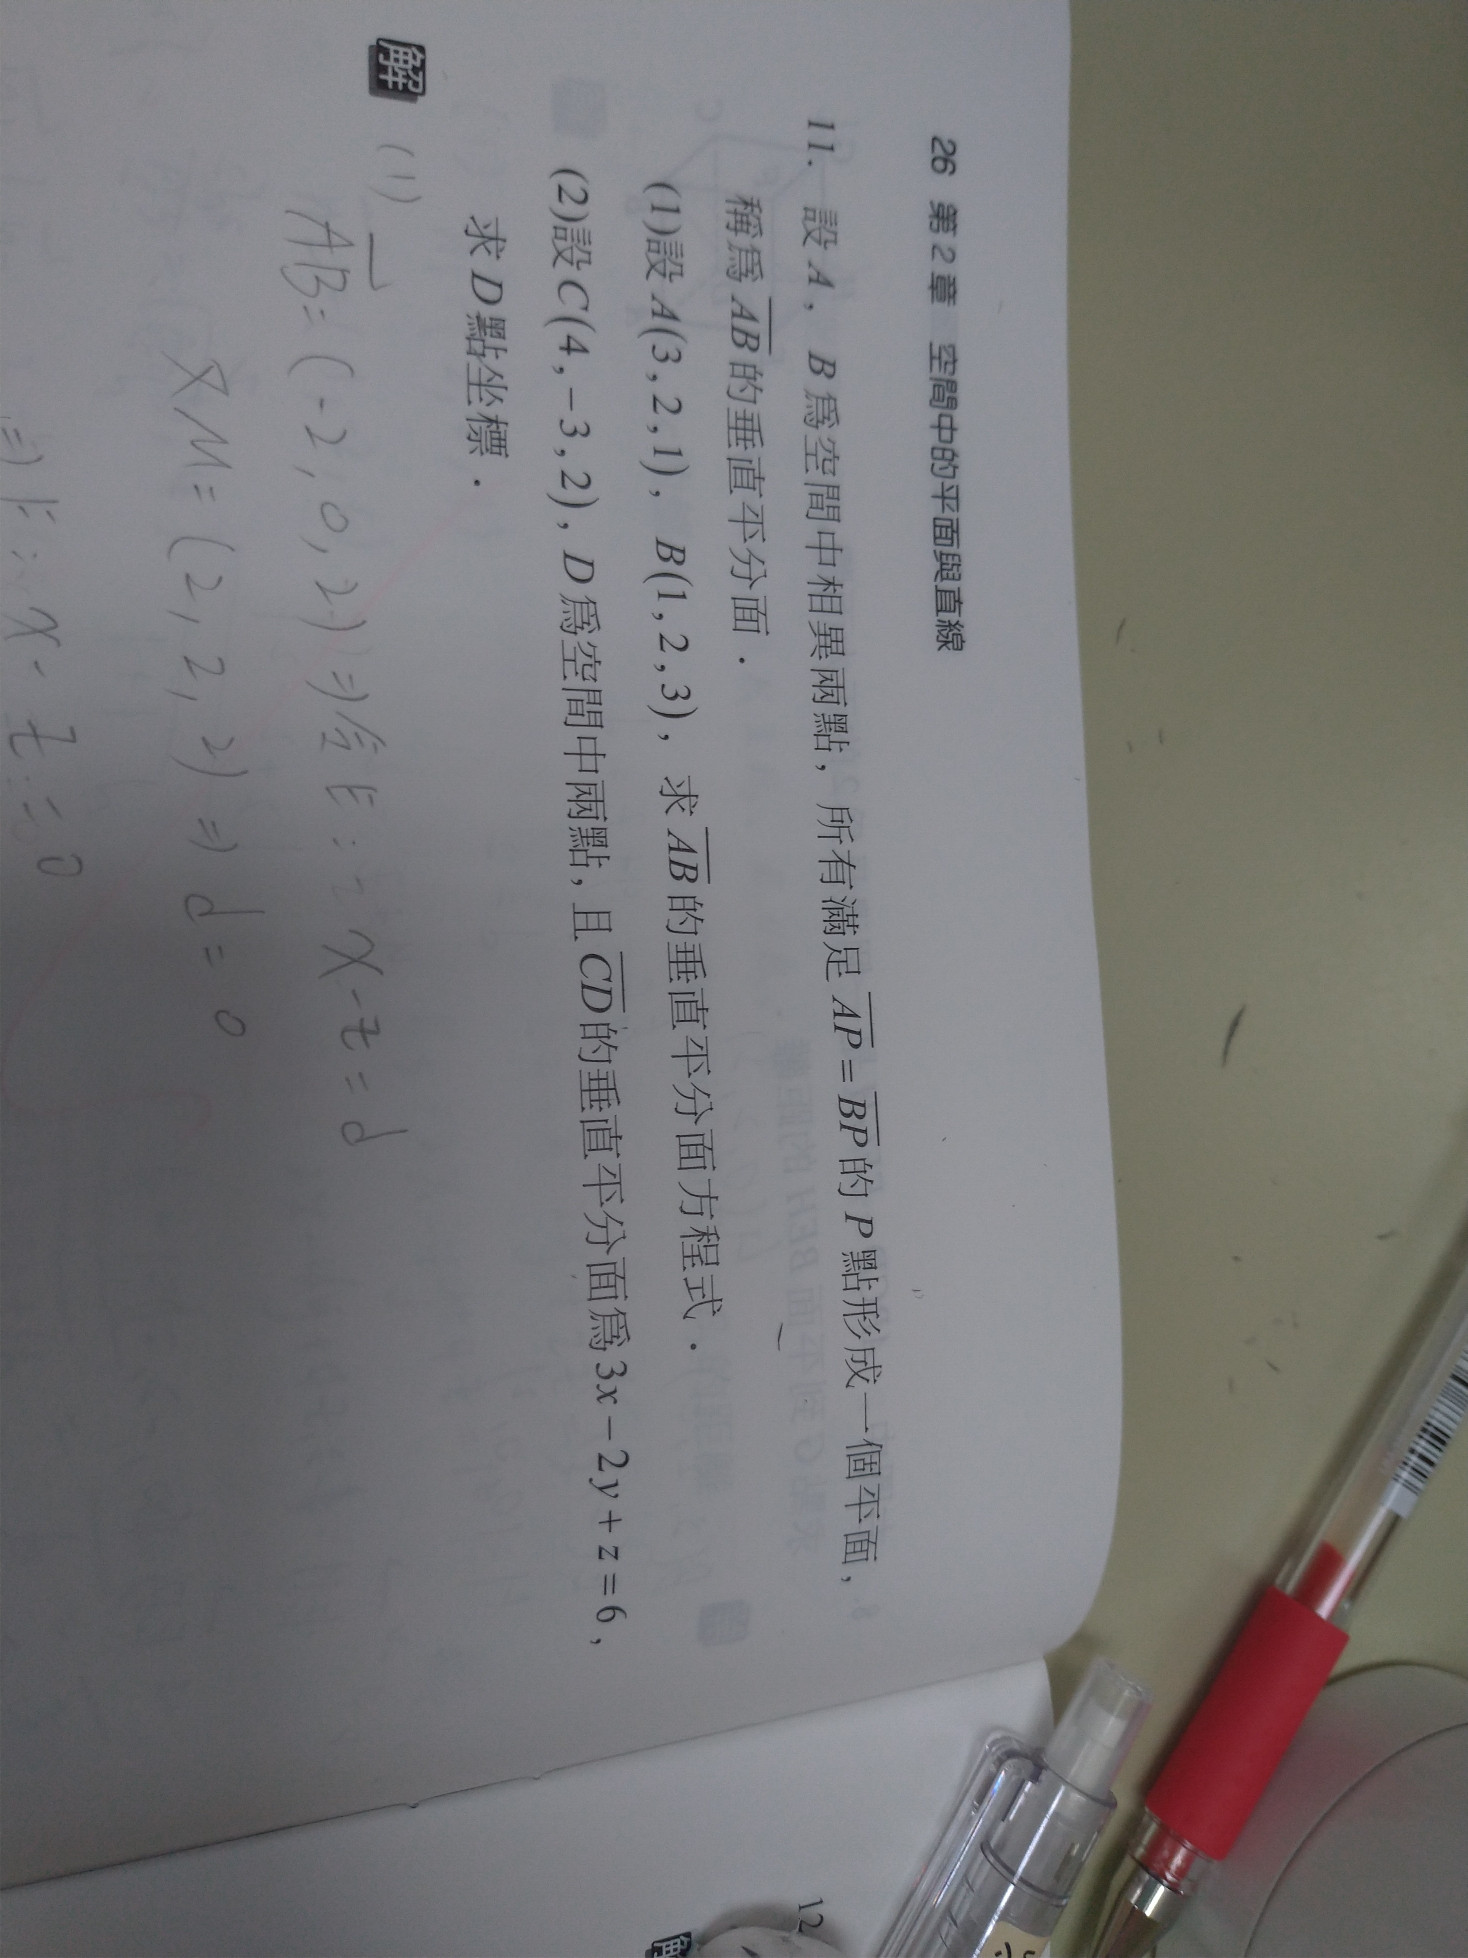 26 第2章 空間中的平面與直線
11. 設A,B為空間中相異兩點,所有滿足AP=BP的P點形成一個平面,
稱為AB的垂直平分面.
(1)設A(3,2,1),B(1,2,3),求AB的垂直平分面方程式.
(2)設C(4,-3,2),D為空間中兩點,且CD的垂直平分面為3x-2y+z=6,
求D點坐標.
解 (1)
AB=(-2,0,2)⇒令E:x-z=d
又M=(2,2,2)⇒d=0
⇒E:x-z=0
12
解